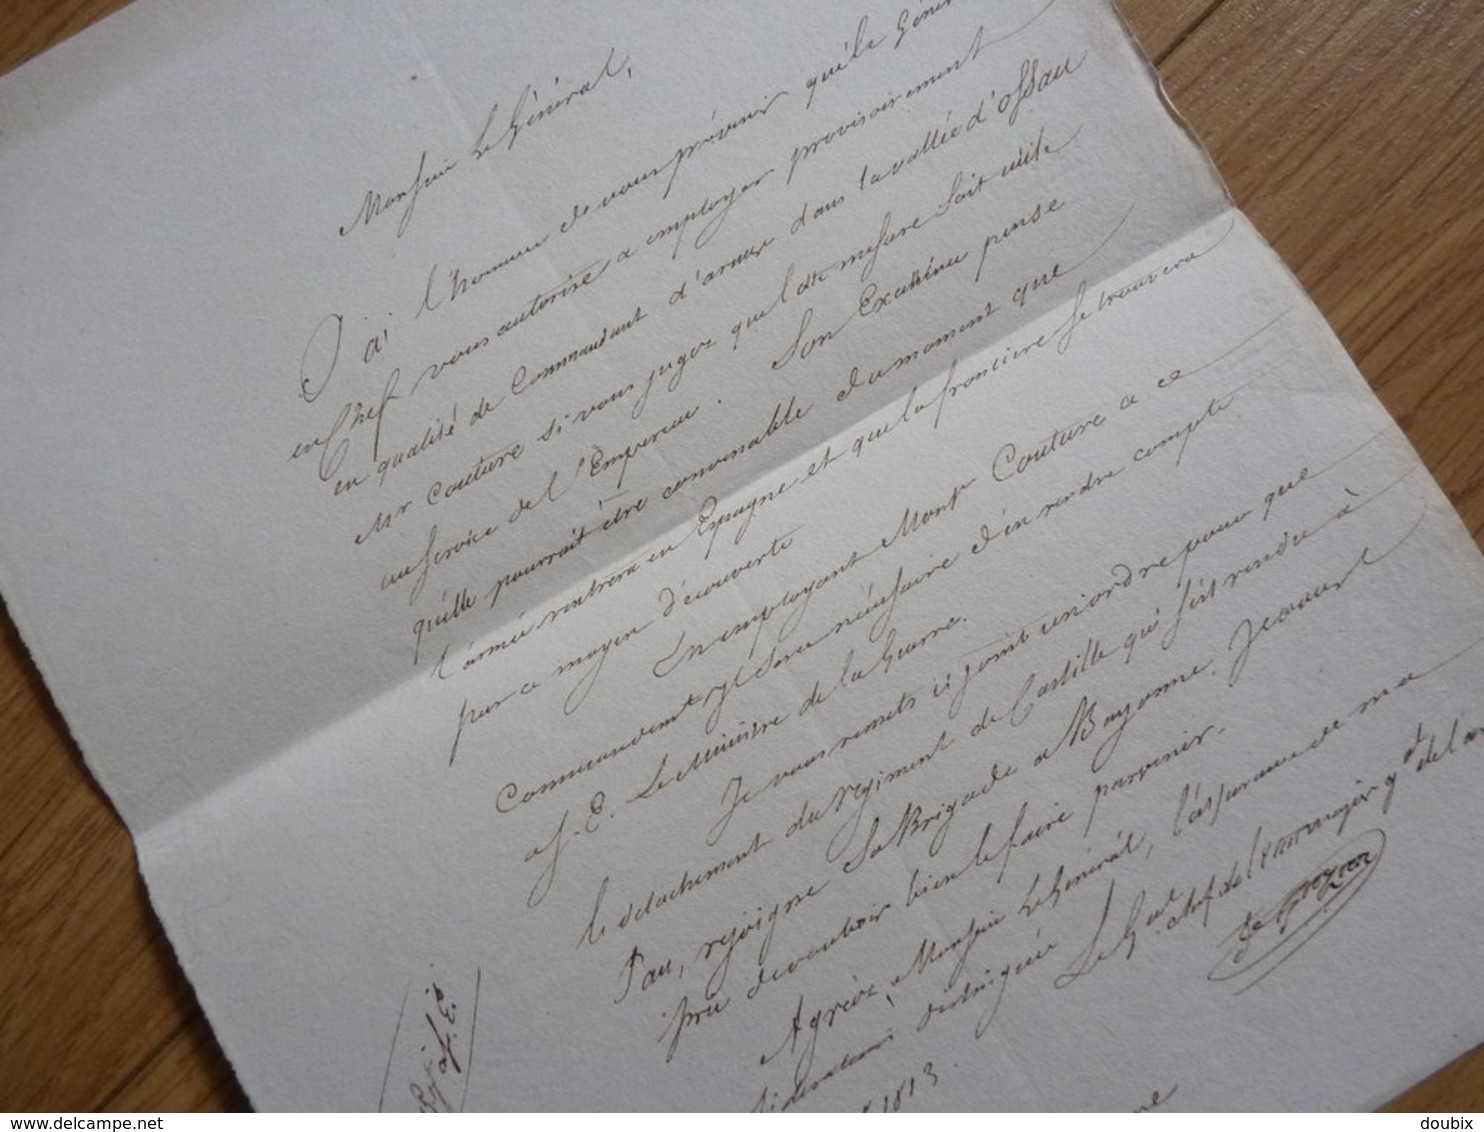 Monsieur Le Général,
J'ai l'honneur de vous prévenir qu'el le Géné
en Chef vous autorise a employer provisoirement
en qualité de Commandant d'armes dans la vallée d'ossau
Mr Couture si vous jugez que cette mesure soit utile
au service de l'Empereur. Son Excellence pense
qu'elle pourrait être convenable du moment que
l'armée rentrera en Espagne et que la frontiere se trouvera
par ce moyen découverte
En employant Monsr Couture a ce
Commandemt il sera nécessaire d'en rendre compte
a S. E. Le Ministre de la Guerre.
Je vous remets ci joint un ordre pour que
le détachement du régiment de Castille qui s'est rendu à
Pau, rejoigne Sa Brigade a Bayonne. Je vous
prie de vouloir bien le faire parvenir.
Agréez, Monsieur Le Général, l'assurance de ma
sidération distinguée
Le Gal chef de l'état major gal de l'ar
1813.
nne
delcampe.net
doubix